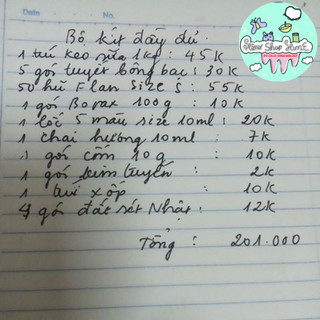 Slime Shop Slime
Date
No.
Bộ kit đầy đủ:
1 túi keo sữa 1kg: 45K
5 gói tuyết bông bạc: 30K
50 hũ Flan Size S: 55K
1 gói Borax 100g: 10K
1 lốc 5 màu size 10ml: 20K
1 chai hương 10ml: 7K
1 gói cốm 10g: 10K
1 gói kim tuyến: 2K
1 túi xốp: 10K
4 gói đất sét Nhật: 12K
Tổng: 201.000